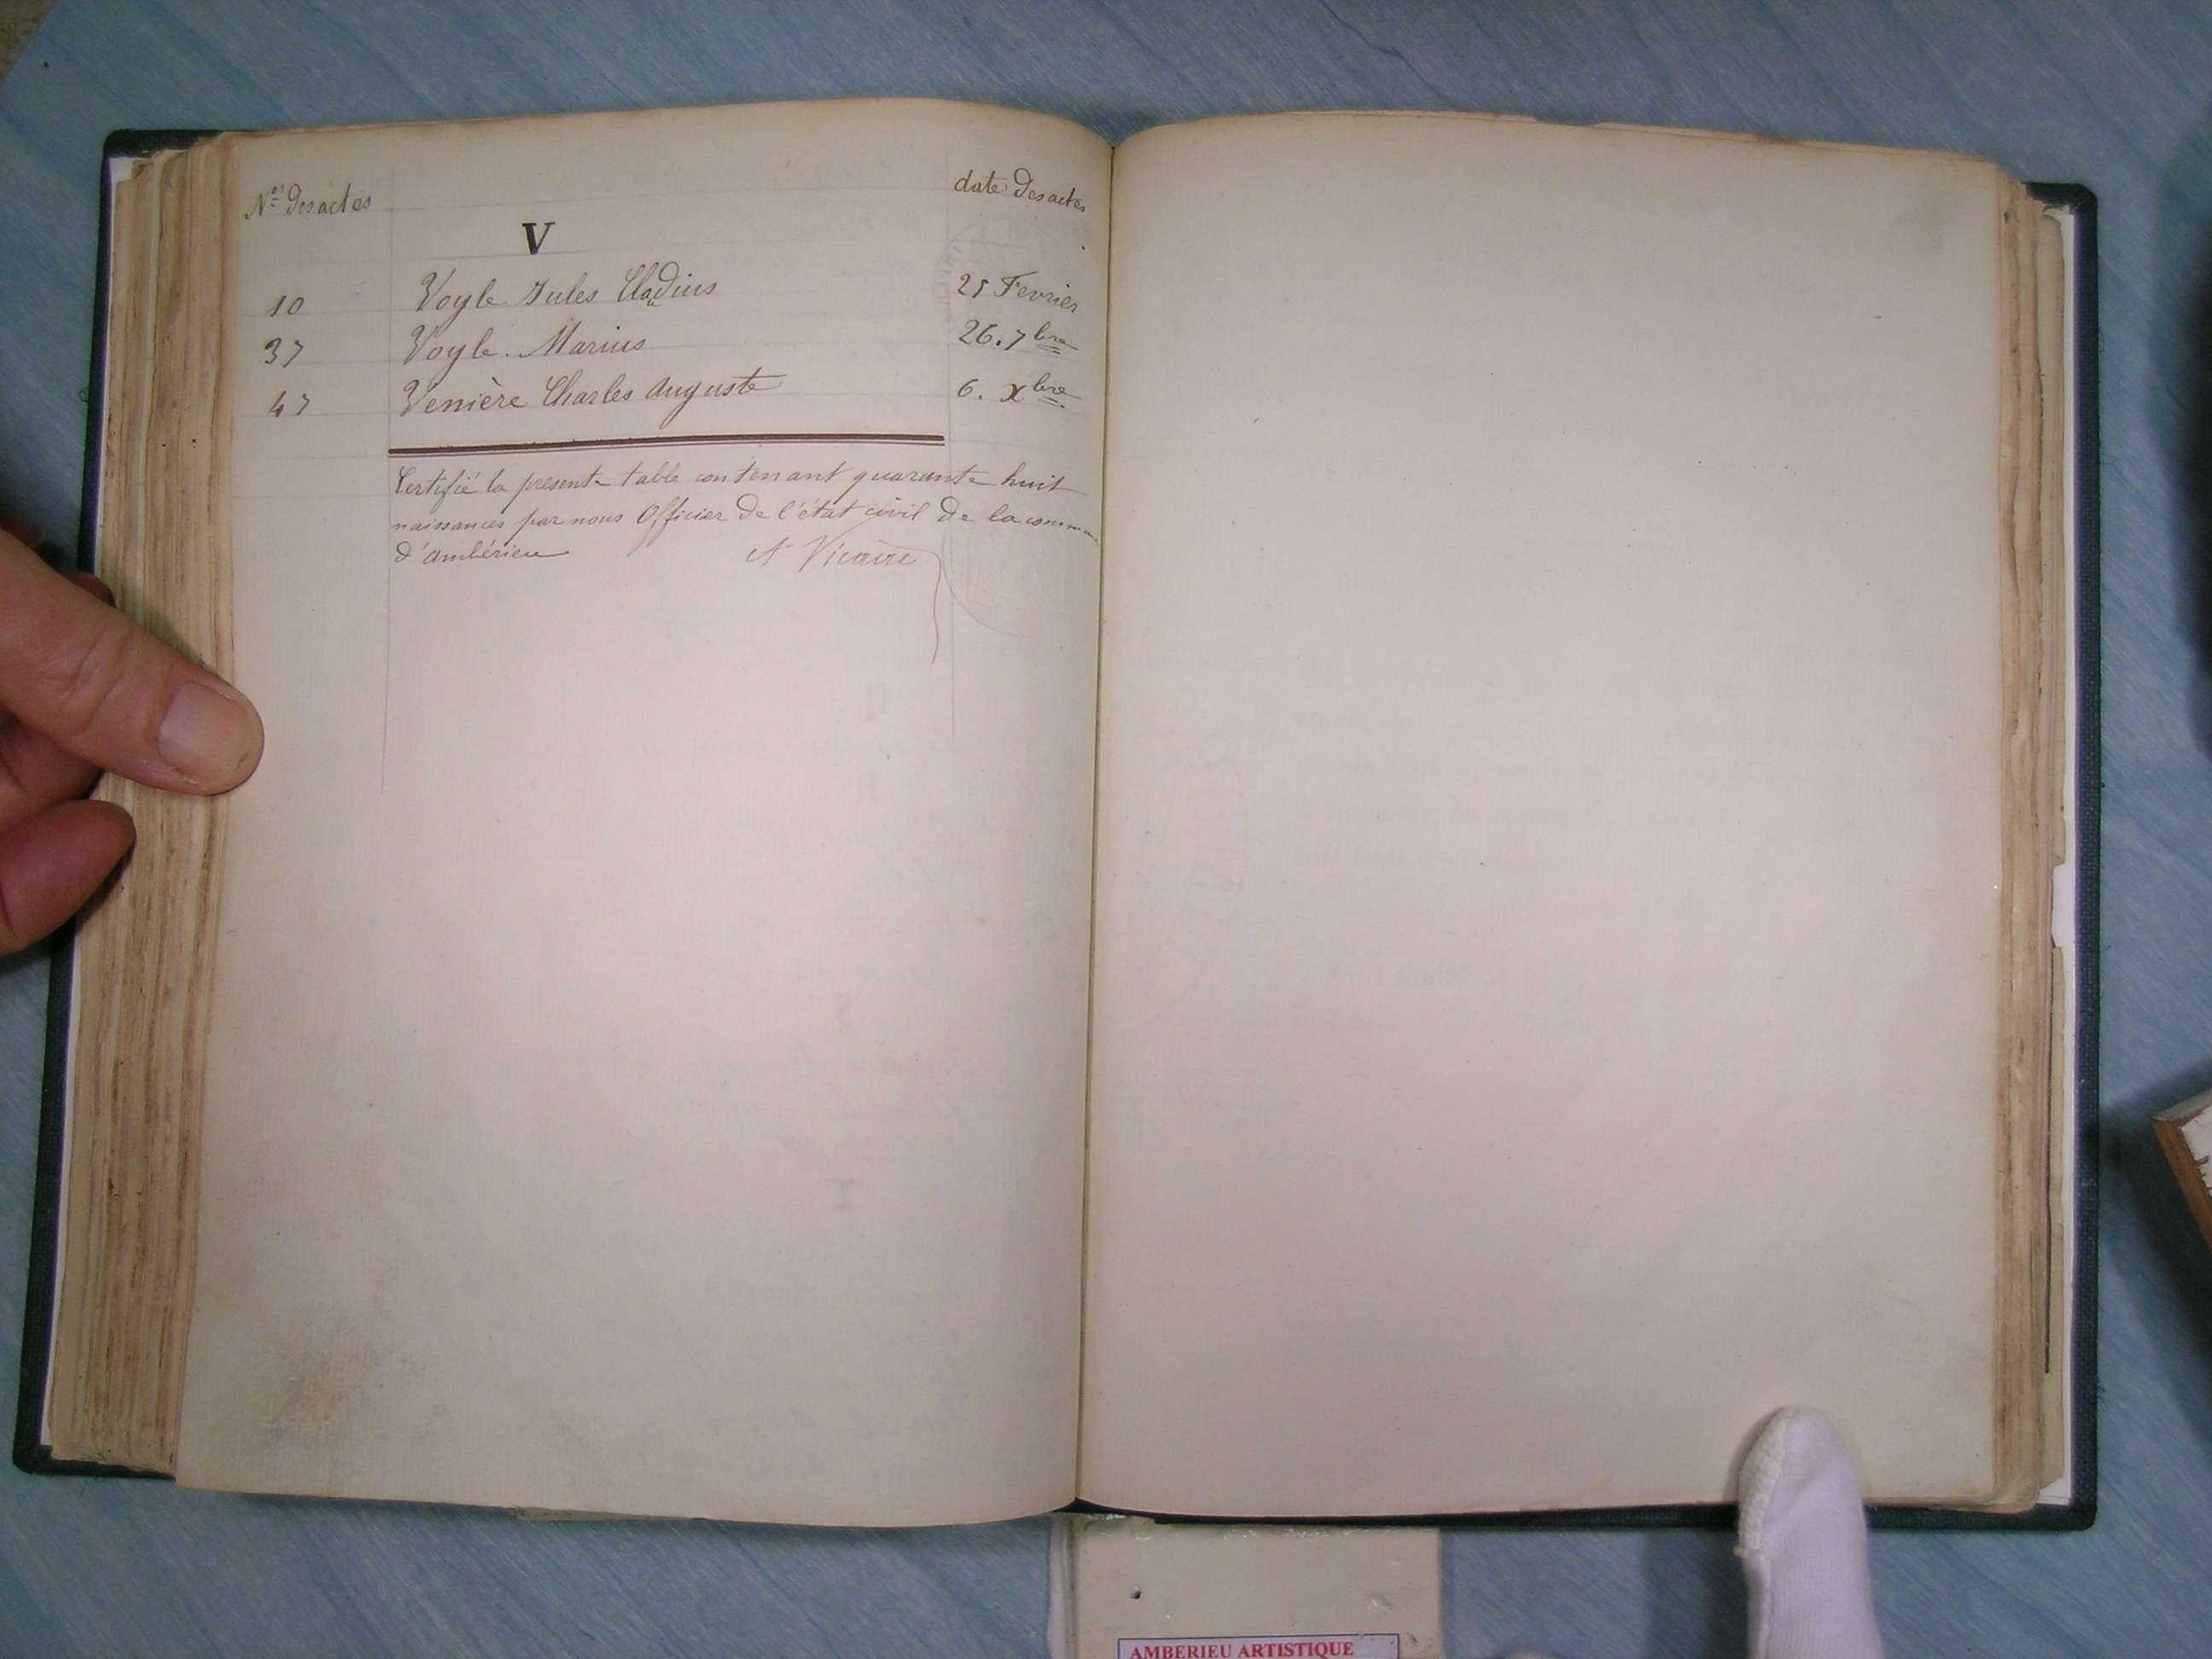 Nos des actes date des actes
V
10 Voyle Jules Claudius 25 Fevrier
37 Voyle. Marius 26. 7bre
47 Venière Charles Auguste 6. Xbre
Certifié la presente table contenant quarante huit
naissances par nous Officier de l'état civil de la commune
d'ambérieu A Vicaire
AMBERIEU ARTISTIQUE